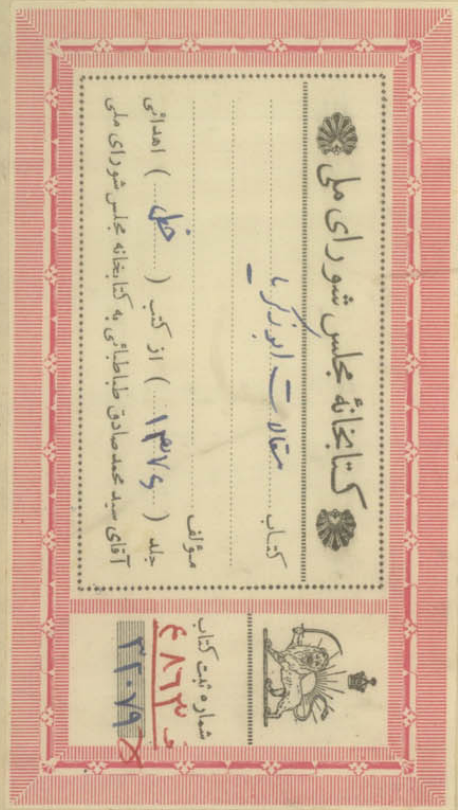 کتابخانهٔ مجلس شورای ملی
کتاب مقالات ابوزکریا
مؤلف
جلد (۱۳۷۶) از کتب (خطی) اهدائی
آقای سید محمد صادق طباطبائی به کتابخانه مجلس شورای ملی
شماره ثبت کتاب
۳۲۰۷۹